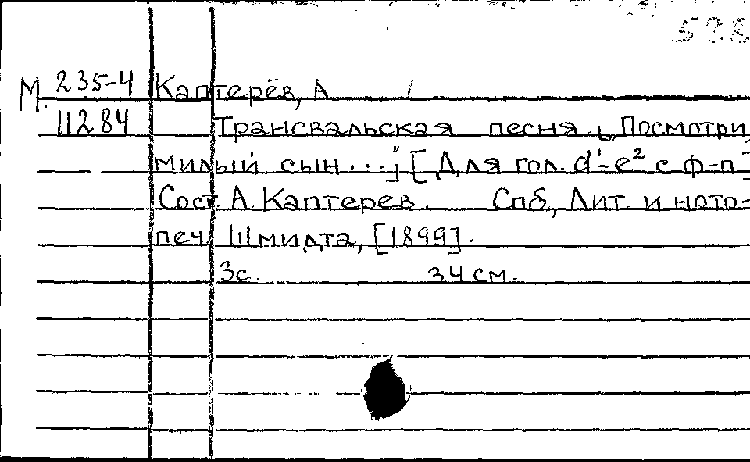 М. 235-4 Каптерёв, А
11284 Трансвальская песня. "Посмотри,
милый сын..." [Для гол. d'-e² с ф-п]
Сост. А. Каптерев. Спб, Лит. и ното-
печ. Шмидта, [1899].
3с. 34 см.